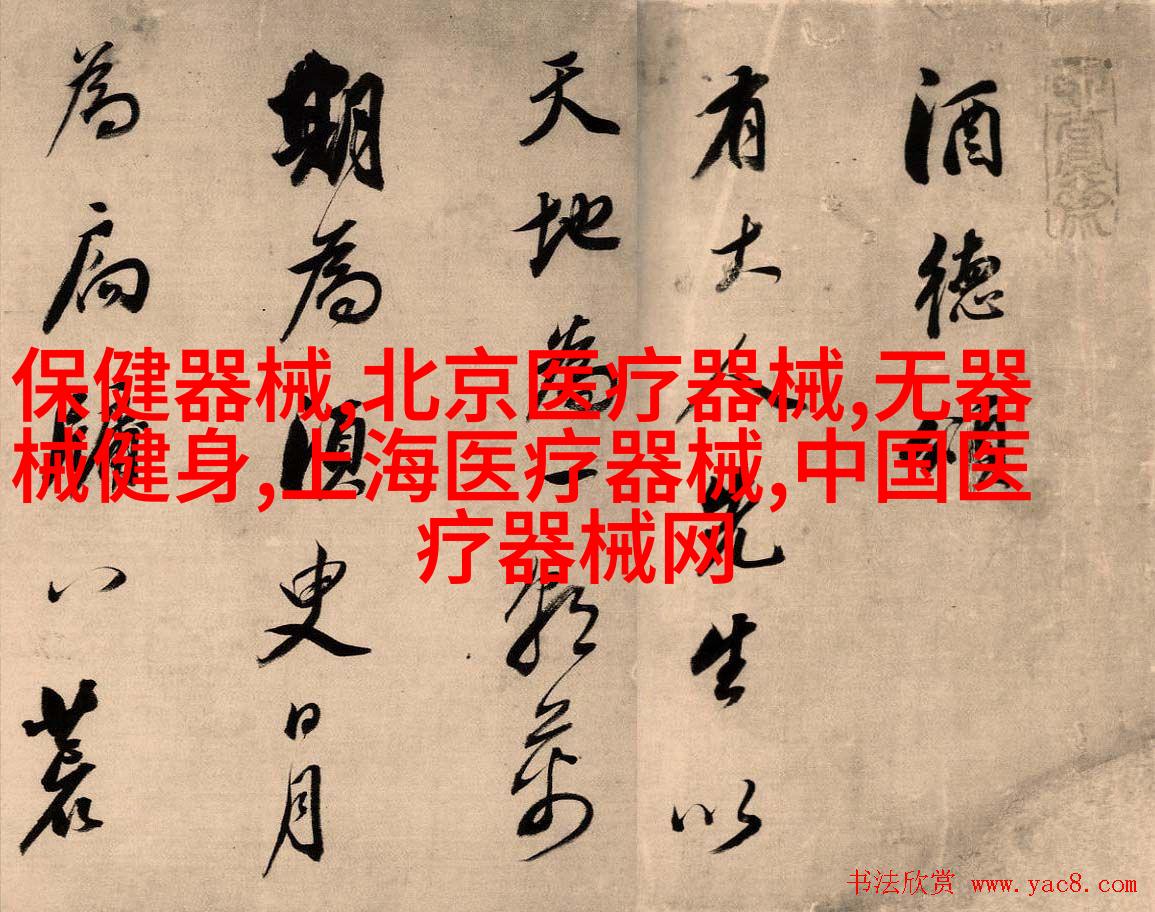 酒德頌
有大人先生以
天地為一朝萬
期為須臾日月
為扃牖八荒
保健器械,北京医疗器械,无器
械健身,上海医疗器械,中国医
疗器械网
书法欣赏 www.yac8.com